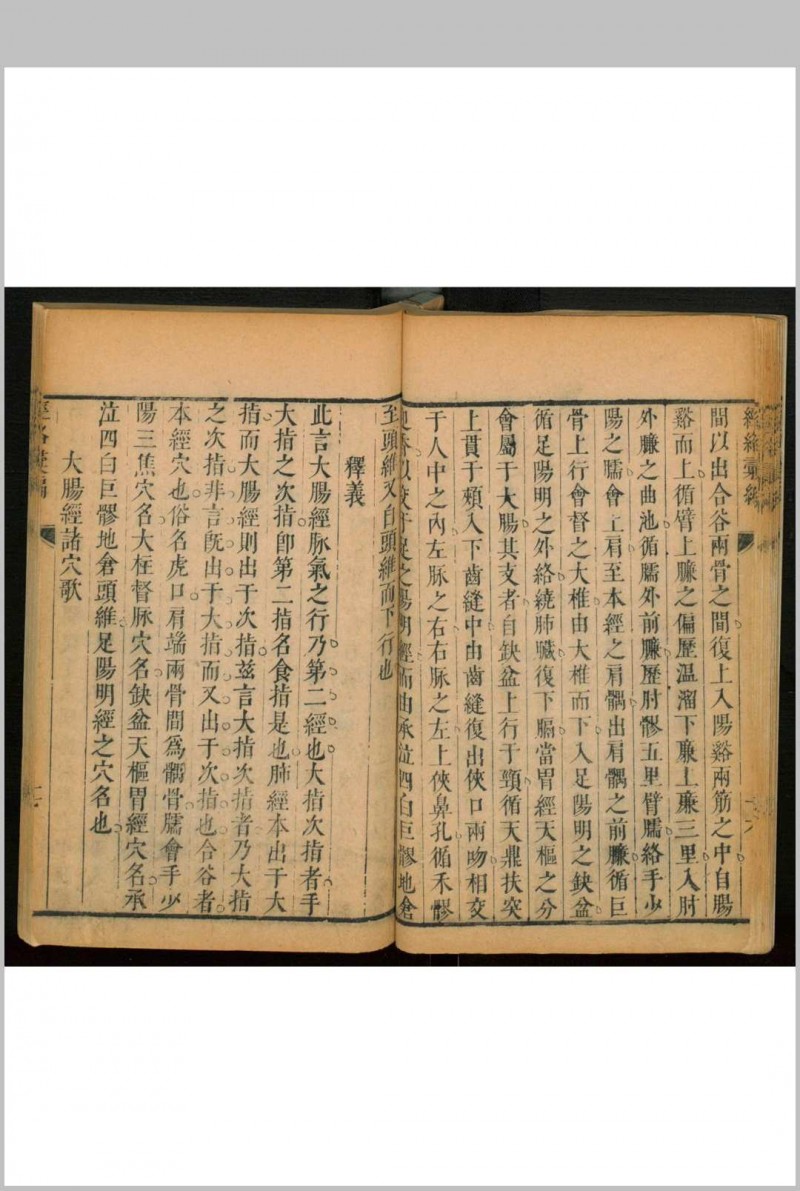 經絡彙編
間以出合谷兩骨之間復上入陽谿兩筋之中自腸
谿而上循臂上廉之偏歷温溜下廉上廉三里入肘
外廉之曲池循臑外前廉歷肘髎五里臂臑絡手少
陽之臑會上肩至本經之肩髃出肩髃之前廉循巨
骨上行會督之大椎由大椎而下入足陽明之缺盆
循足陽明之外絡繞肺臟復下膈當胃經天樞之分
會屬于大腸其支者自缺盆上行于頸循天鼎扶突
上貫于頰入下齒縫中由齒縫復出俠口兩吻相交
于人中之內左脉之右右脉之左上俠鼻孔循禾髎
迎香以交于足之陽明經而由承泣四白巨髎地倉
至頭維又自頭維而下行也
釋義
此言大腸經脉氣之行乃第二經也大指次指者手
大指之次指卽第二指名食指是也肺經本出于大
指而大腸經則出于次指兹言大指次指者乃大指
之次指非言旣出于大指而又出于次指也合谷者
本經穴也俗名虎口肩端兩骨間爲髃骨臑會手少
陽三焦穴名大柱督脉穴名缺盆天樞胃經穴名承
泣四白巨髎地倉頭維足陽明經之穴名也
大腸經諸穴歌
經絡彙編